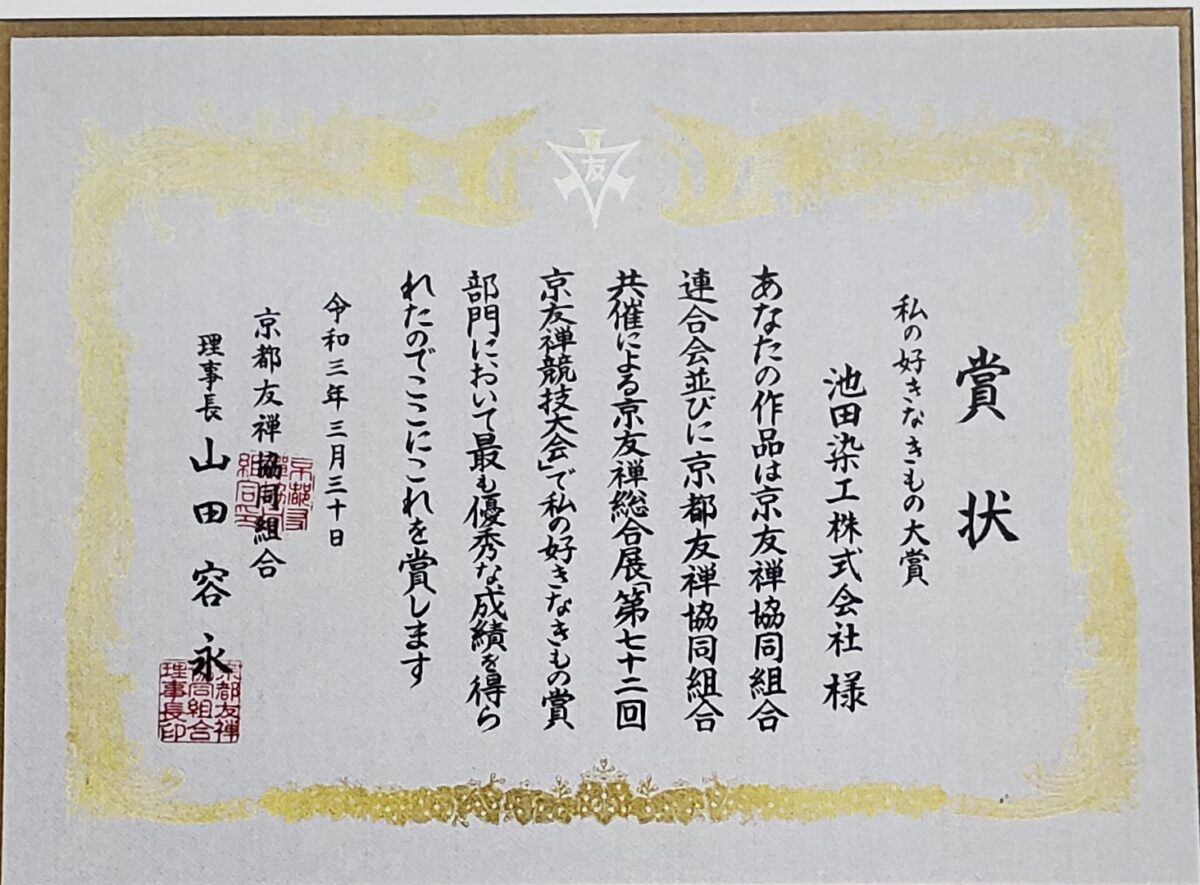 友
賞状
私の好きなきもの大賞
池田染工株式会社 様
あなたの作品は京友禅協同組合
連合会並びに京都友禅協同組合
共催による京友禅総合展「第七十二回
京友禅競技大会」で私の好きなきもの賞
部門において最も優秀な成績を得ら
れたのでここにこれを賞します
令和三年三月三十日
京都友禅協同組合
理事長 山田容永
京都友禅協同組合理事長印